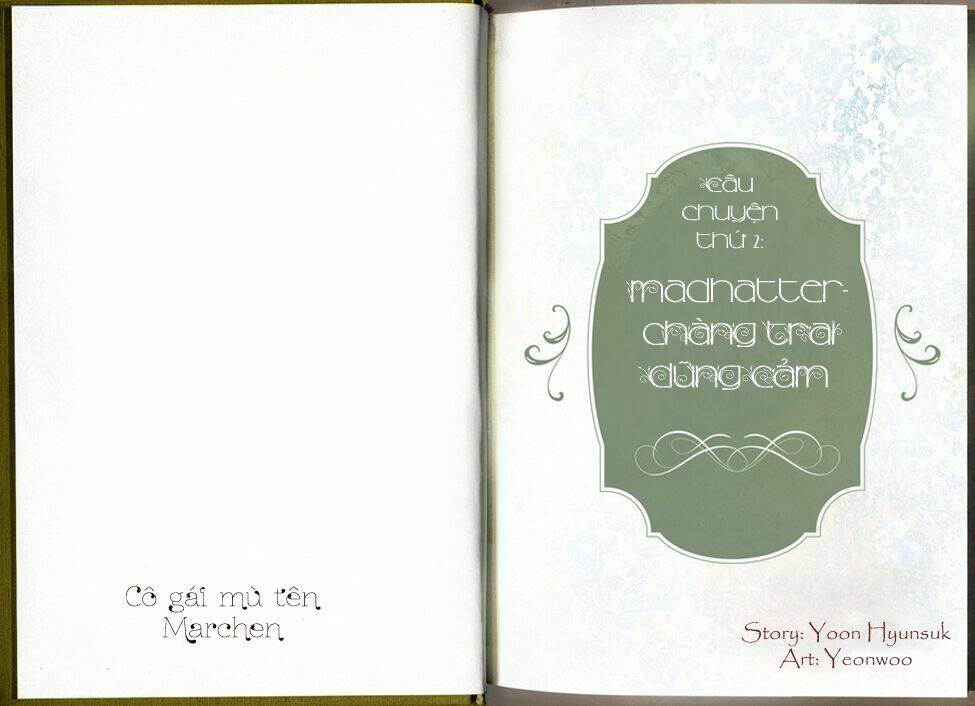 Cô gái mù tên
Marchen
Câu
chuyện
thứ 2:
madhatter-
chàng trai
dũng cảm
Story: Yoon Hyunsuk
Art: Yeonwoo